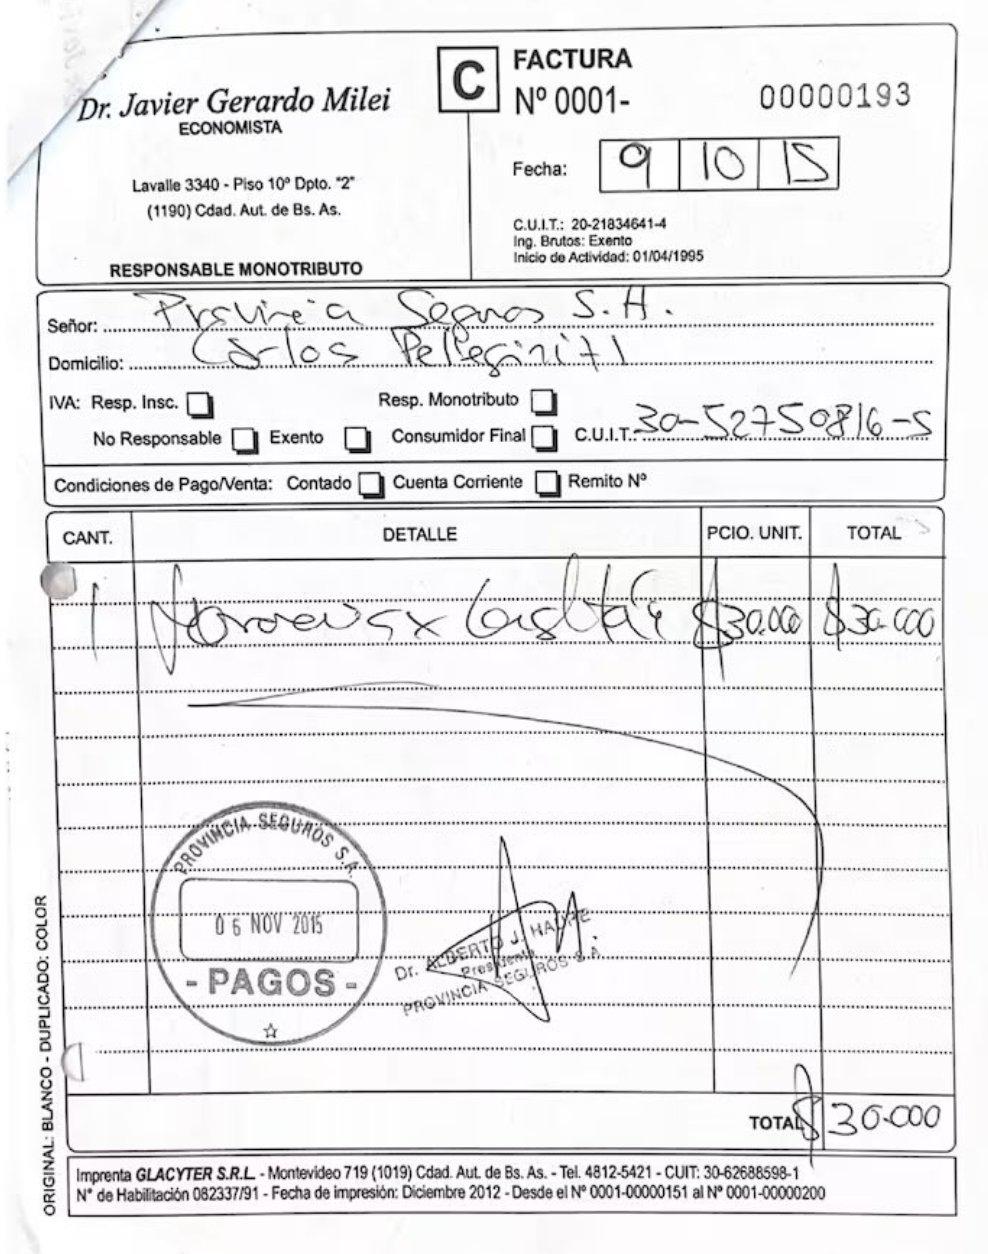 Dr. Javier Gerardo Milei
ECONOMISTA
Lavalle 3340 - Piso 10º Dpto. "2"
(1190) Cdad. Aut. de Bs. As.
RESPONSABLE MONOTRIBUTO
C
FACTURA
Nº 0001- 00000193
Fecha: 9 10 15
C.U.I.T.: 20-21834641-4
Ing. Brutos: Exento
Inicio de Actividad: 01/04/1995
Señor: Provincia Seguros S.A.
Domicilio: Carlos Pellegrini 71
IVA: Resp. Insc. Resp. Monotributo
No Responsable Exento Consumidor Final C.U.I.T.: 30-52750816-5
Condiciones de Pago/Venta: Contado Cuenta Corriente Remito Nº
CANT. DETALLE PCIO. UNIT. TOTAL
1 $30.000 $30.000
PROVINCIA SEGUROS S.A.
06 NOV 2015
- PAGOS -
Dr. ALBERTO J.
Presidente
PROVINCIA SEGUROS S.A.
TOTAL $ 30.000
ORIGINAL: BLANCO - DUPLICADO: COLOR
Imprenta GLACYTER S.R.L. - Montevideo 719 (1019) Cdad. Aut. de Bs. As. - Tel. 4812-5421 - CUIT: 30-62688598-1
N° de Habilitación 082337/91 - Fecha de impresión: Diciembre 2012 - Desde el Nº 0001-00000151 al Nº 0001-00000200